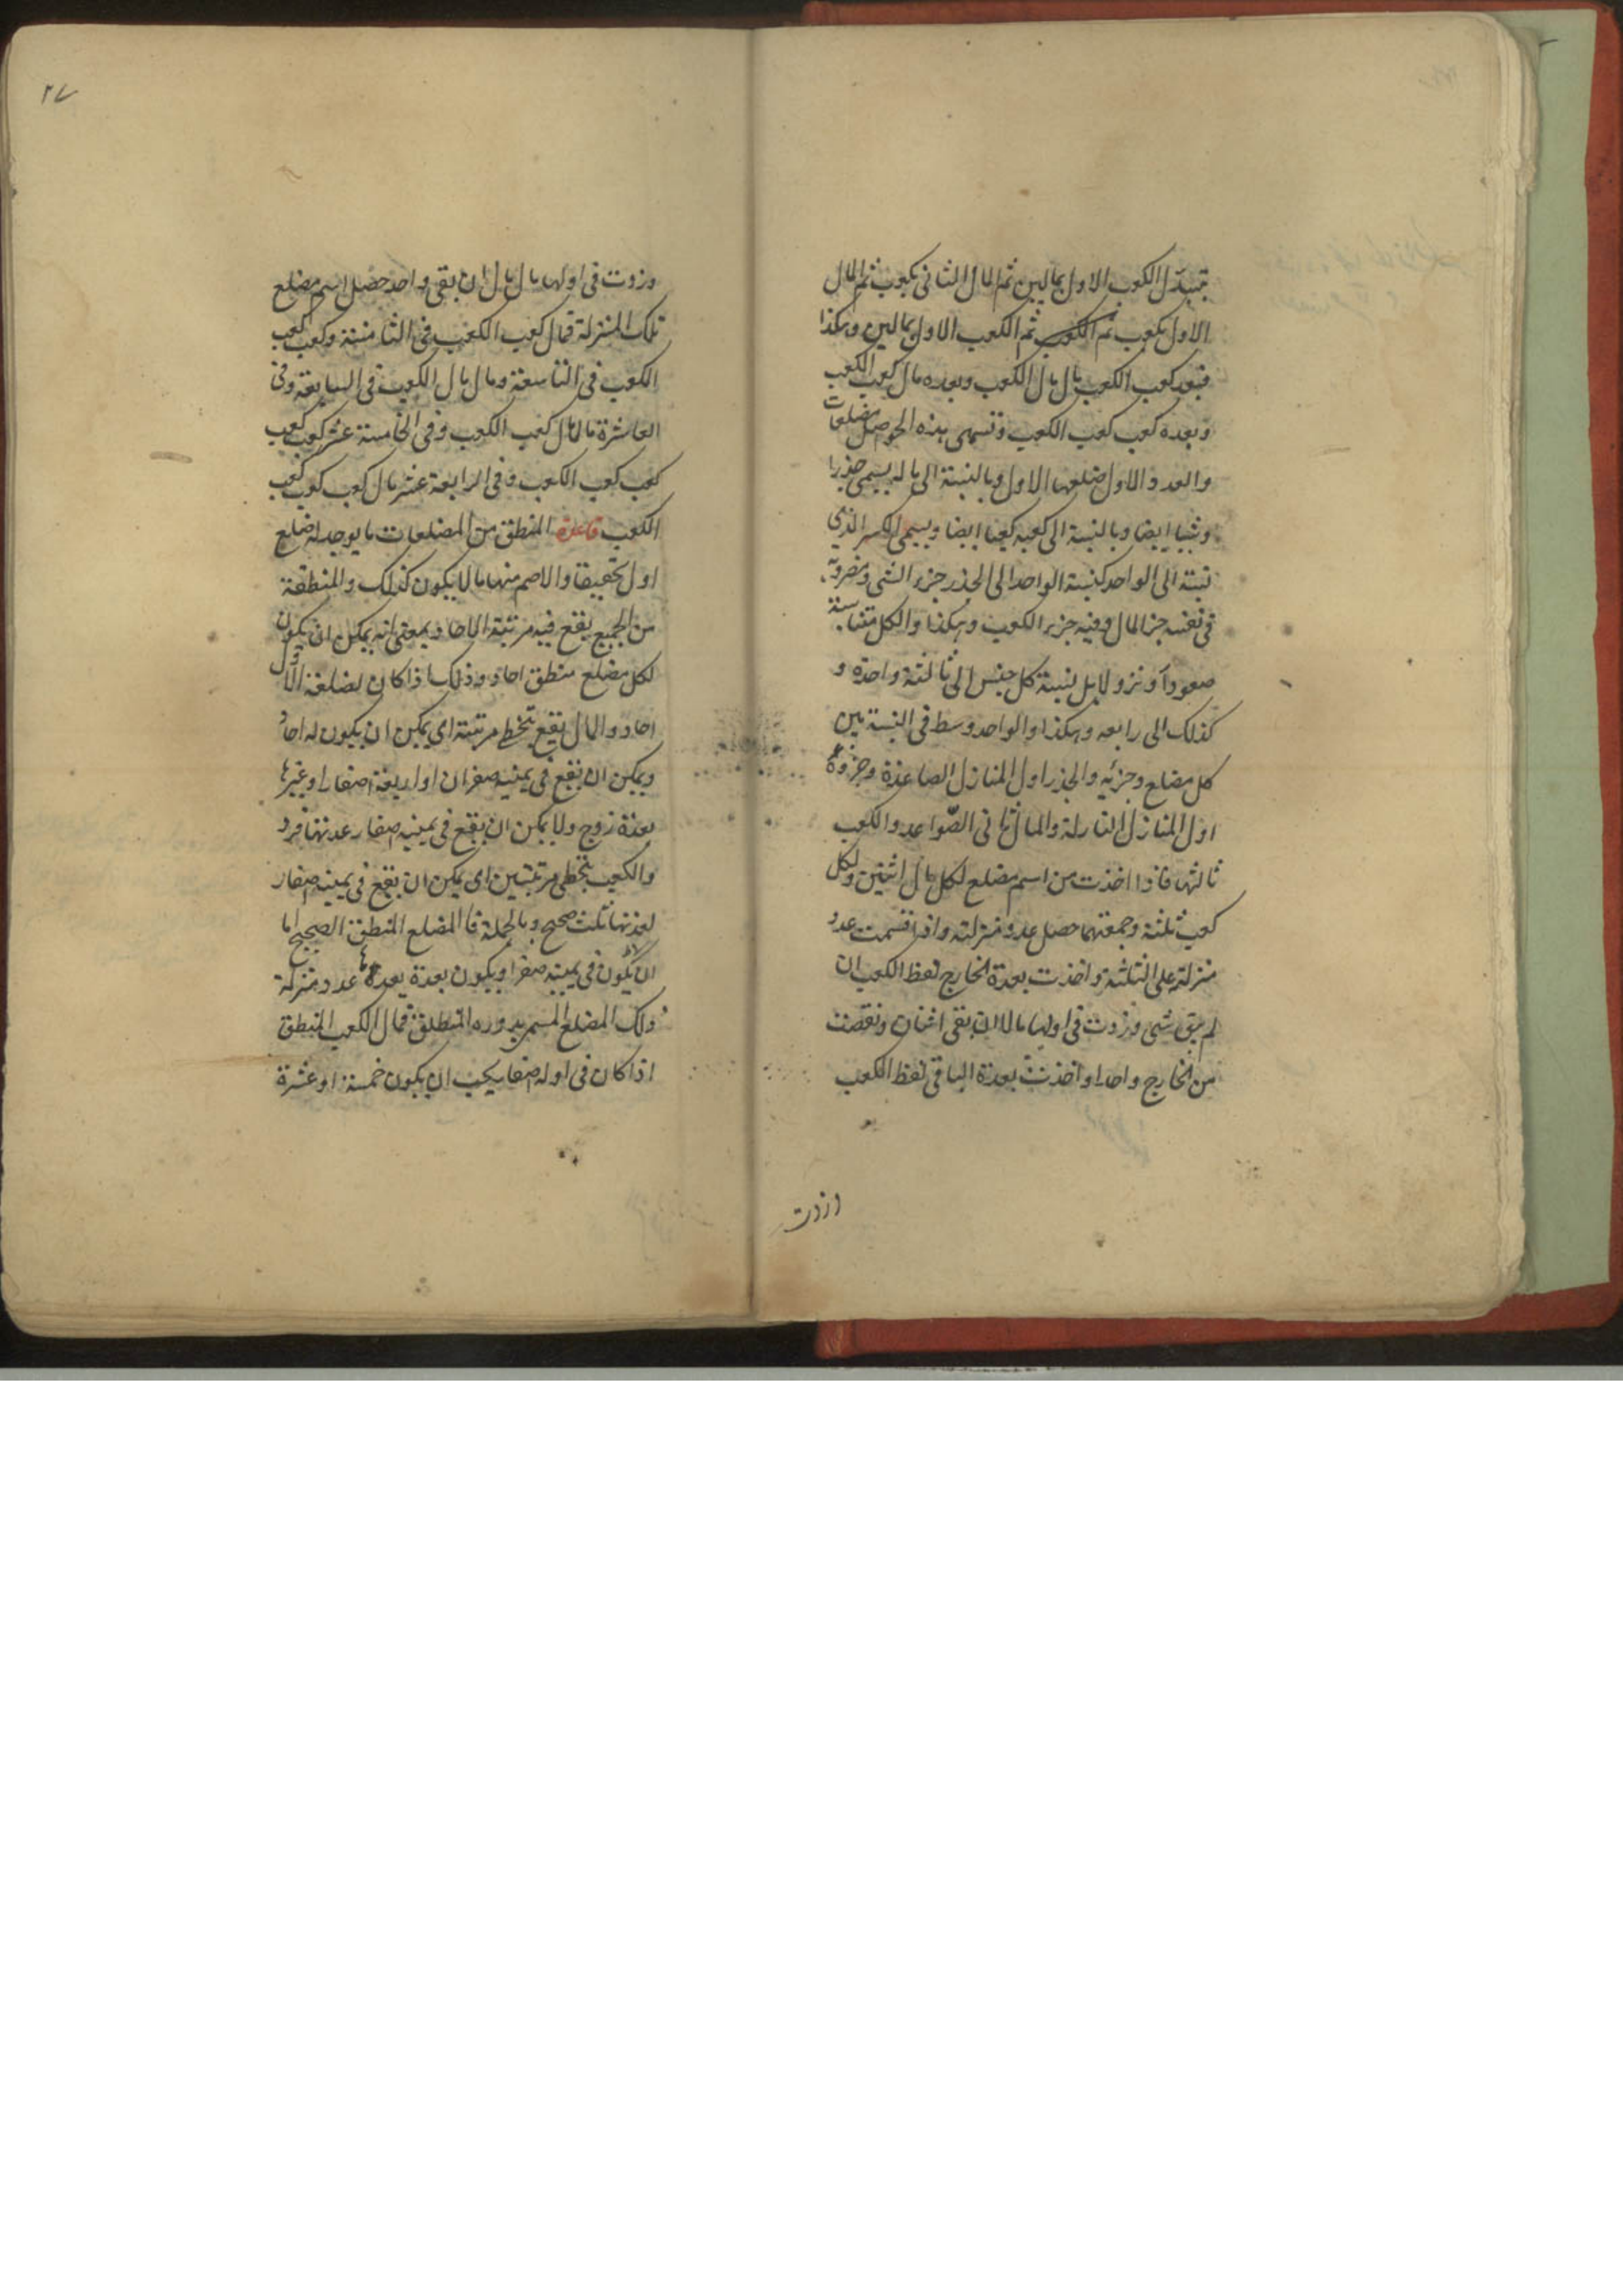 بتبديل الكعب الاول بمالين ثم المال الثانى بكعب ثم المال
الاول بكعب ثم الكعب ثم الكعب الاول بمالين وهكذا
فبعد كعب الكعب مال مال الكعب وبعده مال كعب الكعب
وبعده كعب كعب الكعب وتسمى هذه الحواصل مضلعات
والعدد الاول ضلعها الاول وبالنسبة الى ماله يسمى جذرا
وشيئا ايضا وبالنسبة الى كعبه كعبا ايضا ويسمى الكسر الذى
نسبته الى الواحد كنسبة الواحد الى الجذر جزء الشى ومضروبه
فى نفسه جزء المال وفيه جزء الكعب وهكذا والكل متناسبة
صعودا ونزولا بل نسبة كل جنس الى ثالثه واحدة و
كذلك الى رابعه وهكذا والواحد وسط فى النسبة بين
كل مضلع وجزئه والجذر اول المنازل الصاعدة وجزؤه
اول المنازل النازلة والمال ثانى الصواعد والكعب
ثالثها فاذا اخذت من اسم مضلع لكل مال اثنين ولكل
كعب ثلثة وجمعتهما حصل عدد منزلته واذا قسمت عدد
منزلة على الثلثة واخذت بعدة الخارج لفظ الكعب ان
لم يبق شى وزدت فى اولها مالا ان بقى اثنان ونقصت
من الخارج واحدا واخذت بعدة الباقى لفظ الكعب
وزدت
٢٧
وزدت فى اولها مال مال ان بقى واحد حصل اسم مضلع
تلك المنزلة فمال كعب الكعب فى الثامنة وكعب كعب
الكعب فى التاسعة ومال مال الكعب فى السابعة وفى
العاشرة مال مال كعب الكعب وفى الخامسة عشر كعب كعب
كعب كعب الكعب وفى الرابعة عشر مال كعب كعب كعب
الكعب قاعدة المنطق من المضلعات ما يوجد له ضلع
اول تحقيقا والاصم منها ما لا يكون كذلك والمنطقة
من الجميع يقع فيه مرتبة الاحاد بمعنى انه يمكن ان يكون
لكل مضلع منطق احاد وذلك اذا كان لضلعه الاول
احاد والمال يقع بتخطى مرتبة اى يمكن ان يكون له احاد
ويمكن ان يقع فى يمينه صفران او اربعة اصفار او غيرها
بعدة زوج ولا يمكن ان يقع فى يمينه صفار عدتها فرد
والكعب بتخطى مرتبتين اى يمكن ان يقع فى يمينه صفار
لعدتها ثلث صحيح وبالجملة فالمضلع المنطق الصحيح اما
ان لا يكون فى يمينه صفر او يكون بعدة يعدها عدد منزلة
ذلك المضلع المسمى بدوره المنطق فمال الكعب المنطق
اذا كان فى اوله صفار يجب ان يكون خمسة او عشرة